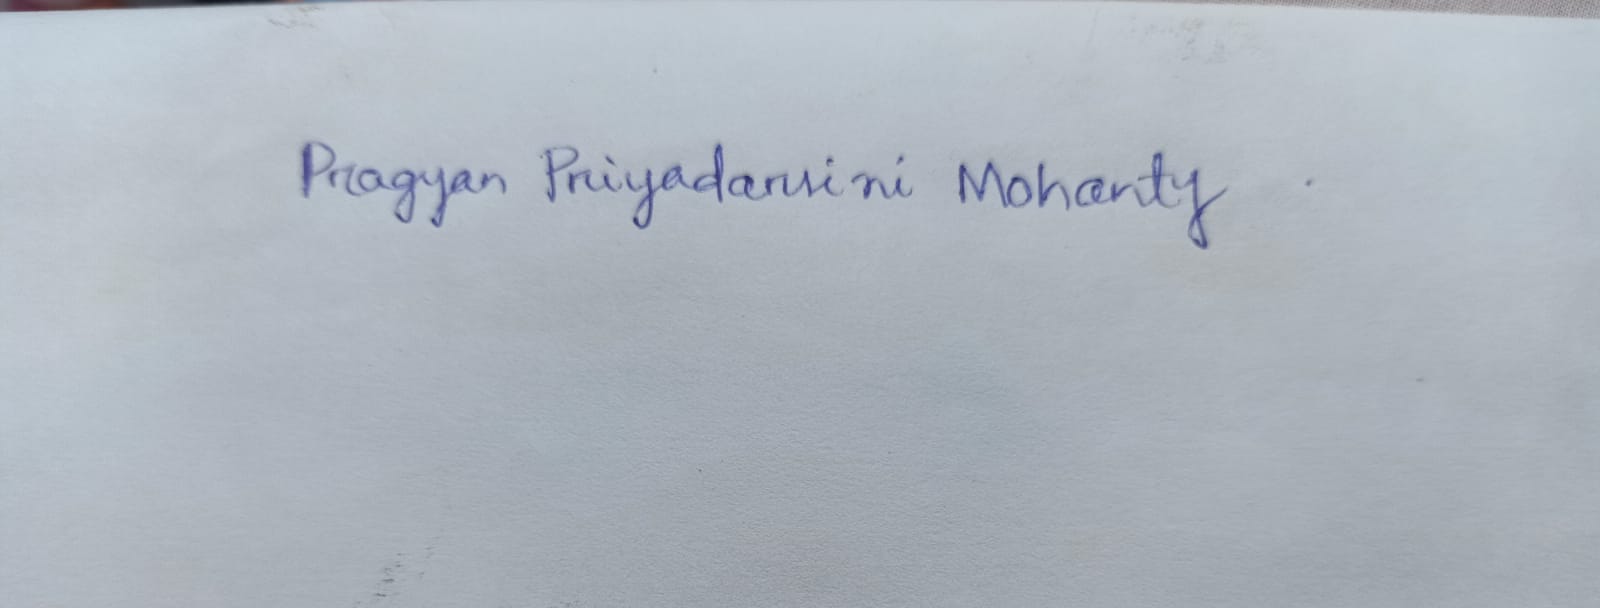 Pragyan Priyadarsini Mohanty